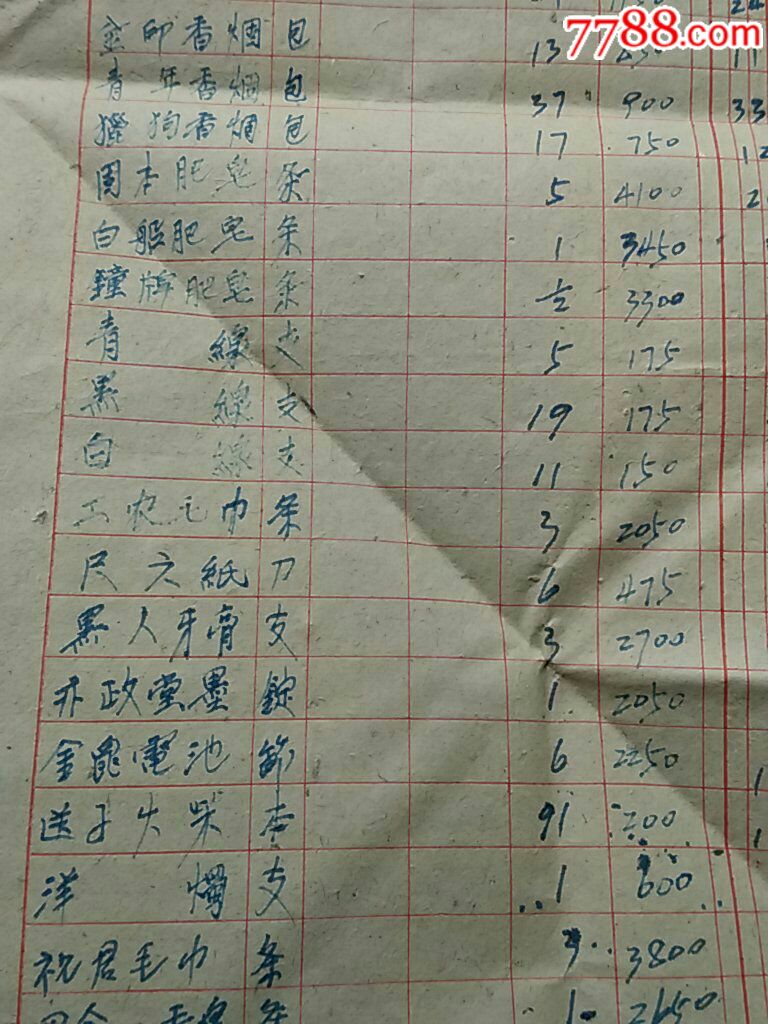 7788.com
金印香烟 包 13
青年香烟 包 37 900 33
獵狗香烟 包 17 750 12
固本肥皂 条 5 4100
白船肥皂 条 1 3450
鐘牌肥皂 条 ½ 3300
青線 支 5 175
黑線 支 19 175
白線 支 11 150
工农毛巾 条 3 2050
尺六紙 刀 6 475
黑人牙膏 支 3 2700
亦政堂墨 錠 1 2050
金鼎電池 節 6 2250
送子火柴 91 200
洋燭 支 1 600
祝君毛巾 条 3 3800
1 2650